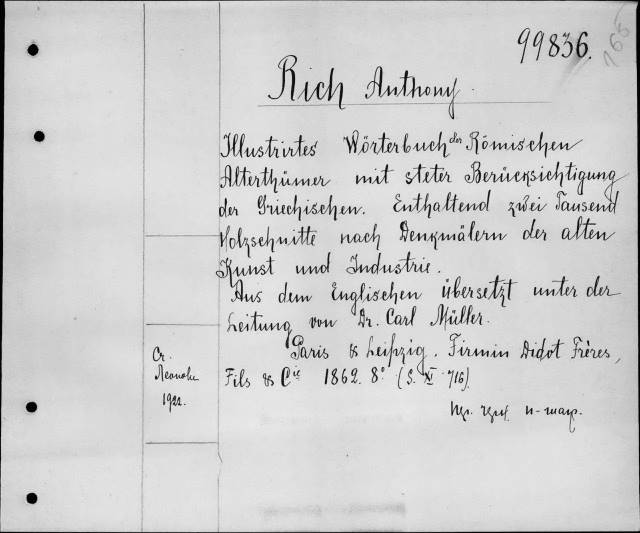 99836.
Rich Anthony
Illustrirtes Wörterbuch der Römischen
Alterthümer mit steter Berücksichtigung
der Griechischen. Enthaltend zwei Tausend
Holzschnitte nach Denkmälern der alten
Kunst und Industrie.
Aus dem Englischen übersetzt unter der
Leitung von Dr. Carl Müller.
Paris & Leipzig. Firmin Didot Frères,
Fils & Cie 1862. 8° (S. XI 716)
Cr.
1922.